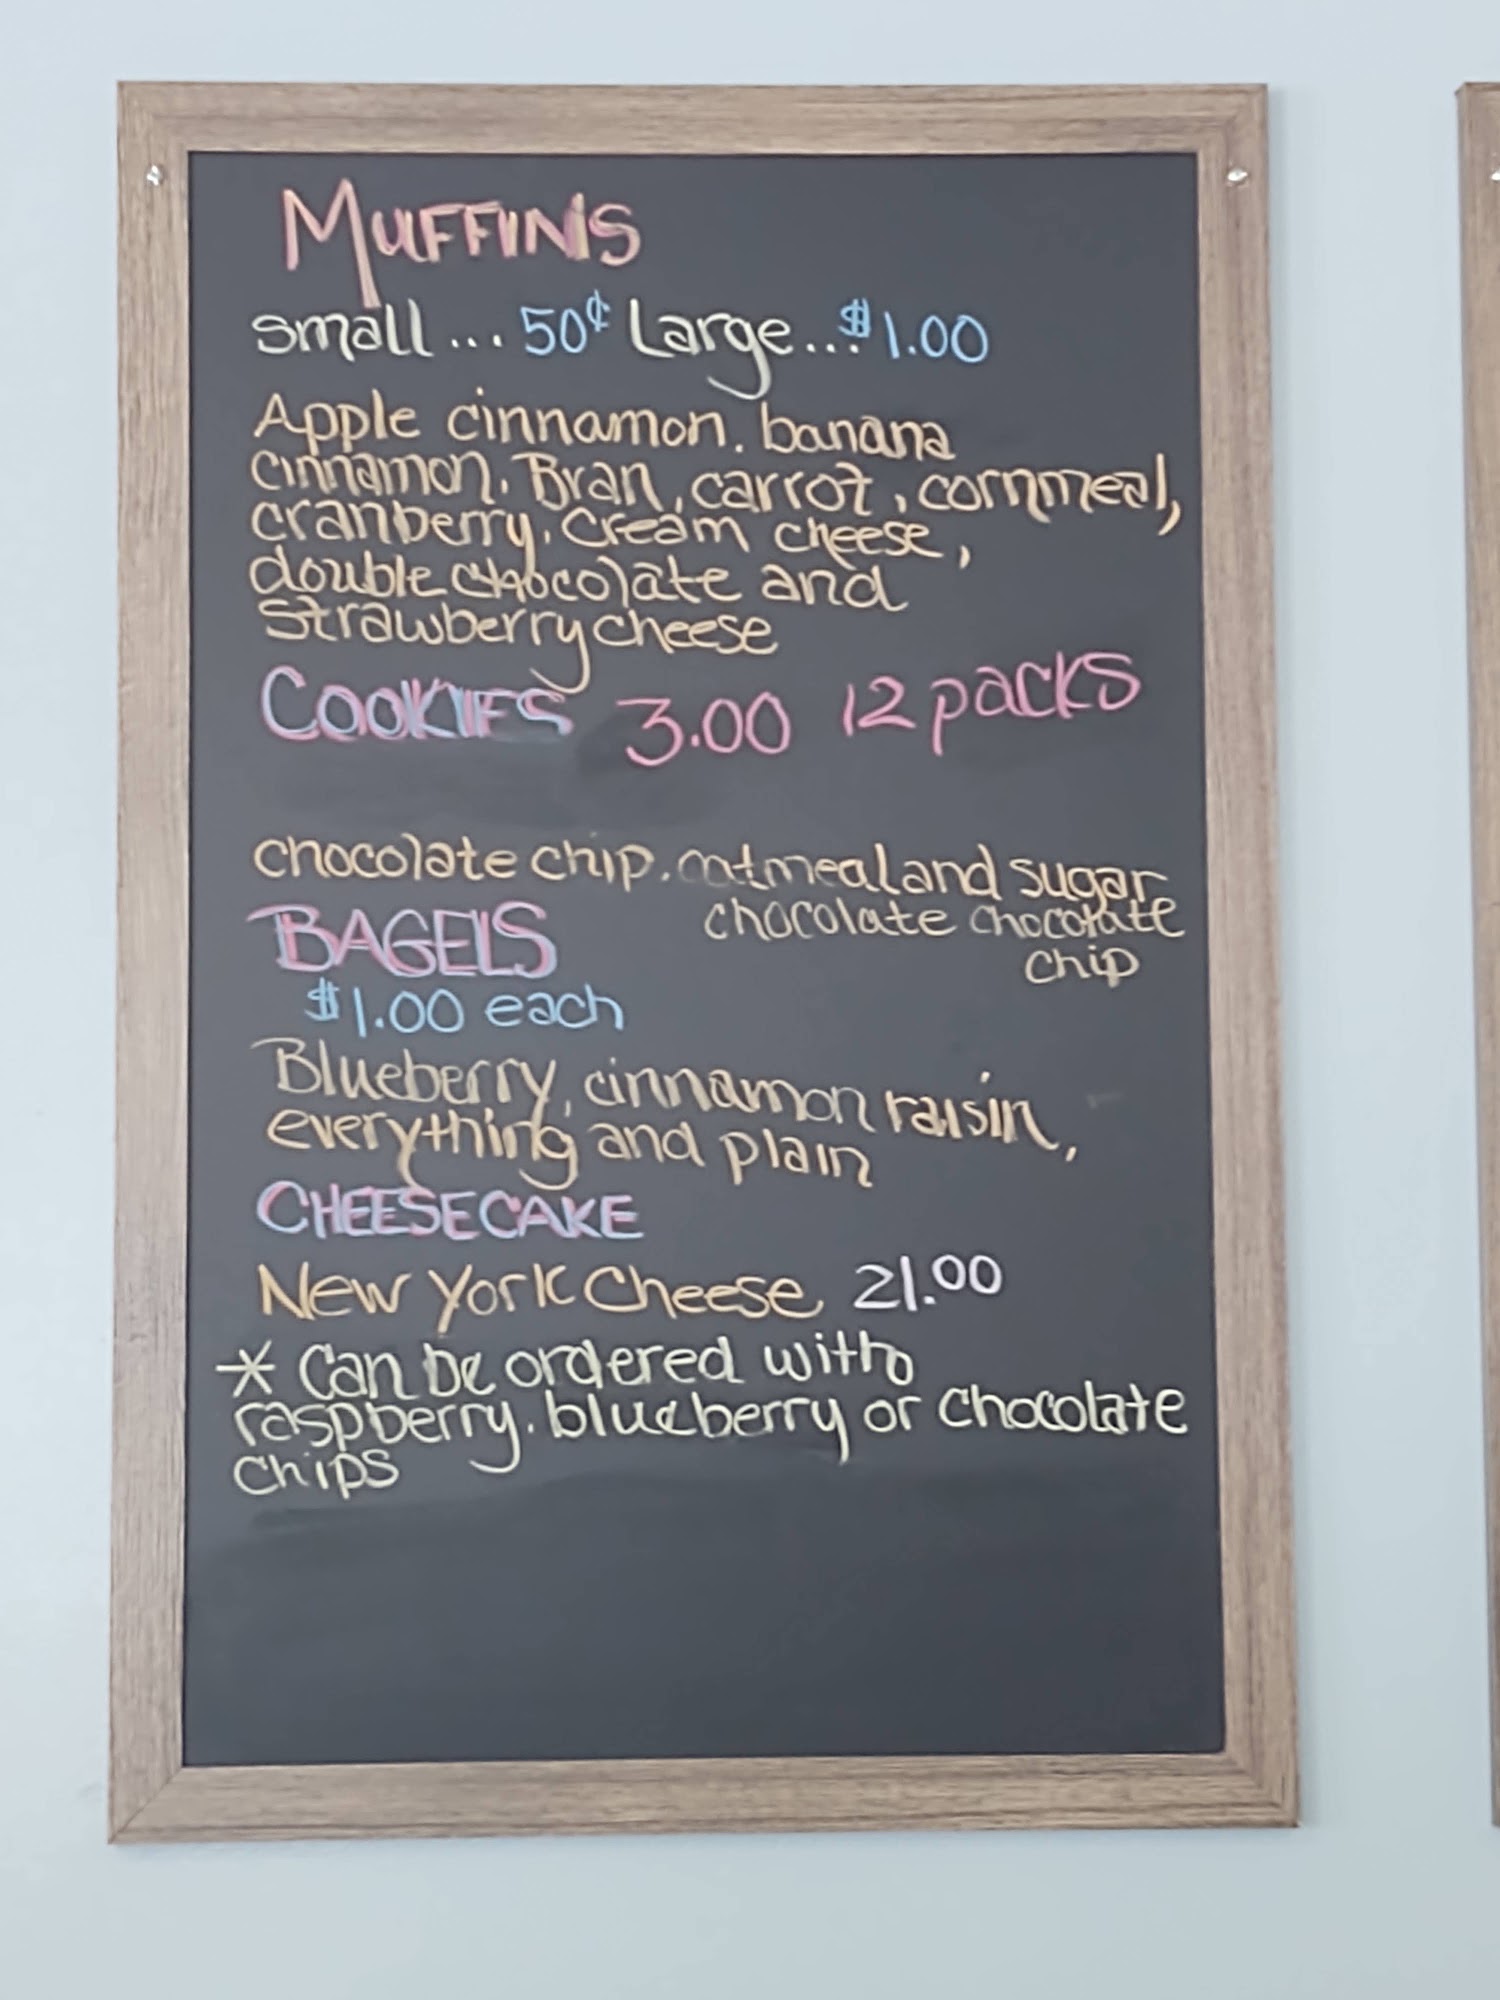 MUFFINS
small ... 50¢ Large...$1.00
Apple cinnamon. banana
cinnamon. Bran, carrot, cornmeal,
cranberry. cream cheese,
double chocolate and
strawberry cheese
COOKIES 3.00 12 packs
chocolate chip. oatmeal and sugar
chocolate chocolate
chip
BAGELS
$1.00 each
Blueberry, cinnamon raisin,
everything and plain
CHEESECAKE
New York Cheese 21.00
* Can be ordered with
raspberry. blueberry or chocolate
chips